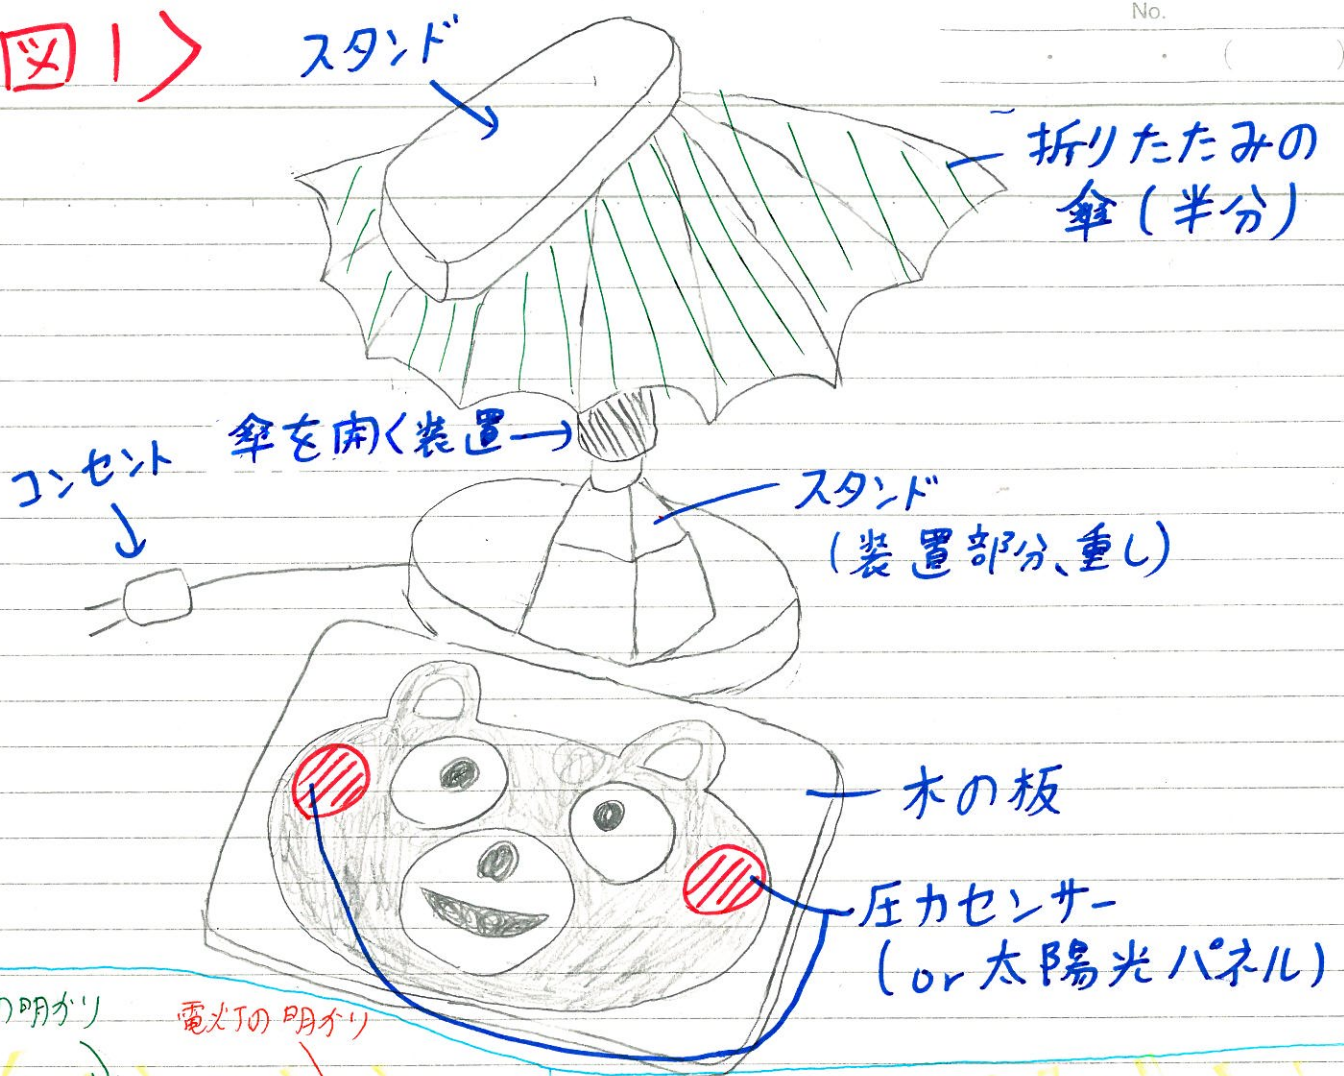 図1〉
No.
スタンド
折りたたみの
傘(半分)
傘を開く装置
コンセント
スタンド
(装置部分、重し)
木の板
圧力センサー
(or 太陽光パネル)
の明かり
電灯の明かり